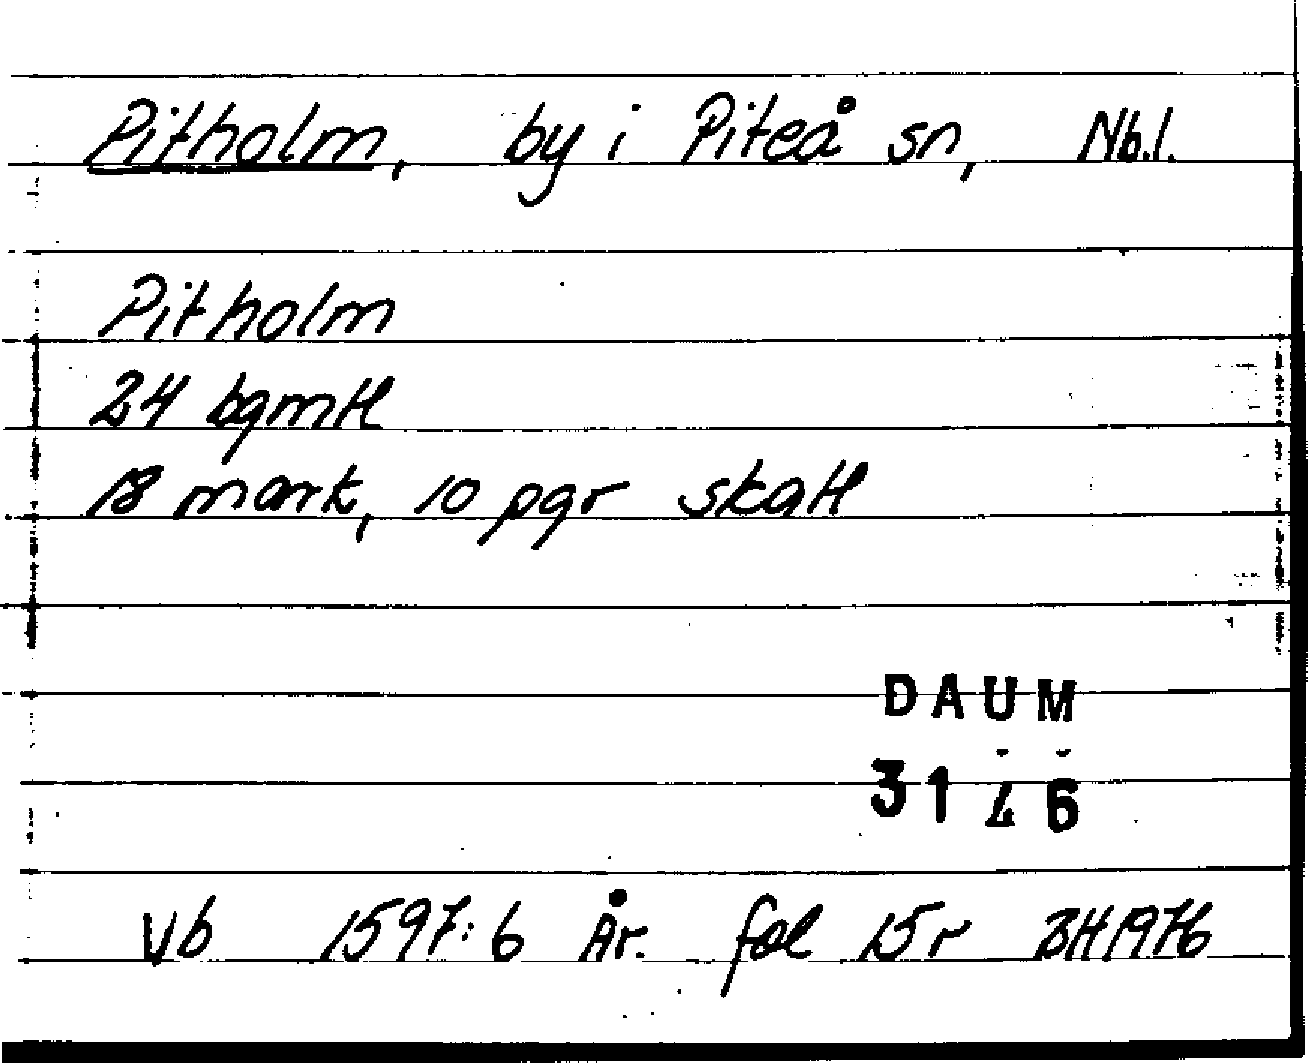 Pitholm, by i Piteå sn, Nb.l.
Pitholm
24 bgmtl
18 mark, 10 pgr skatt
DAUM
3146
Vb 1597:6 År. fol 15r BH1976